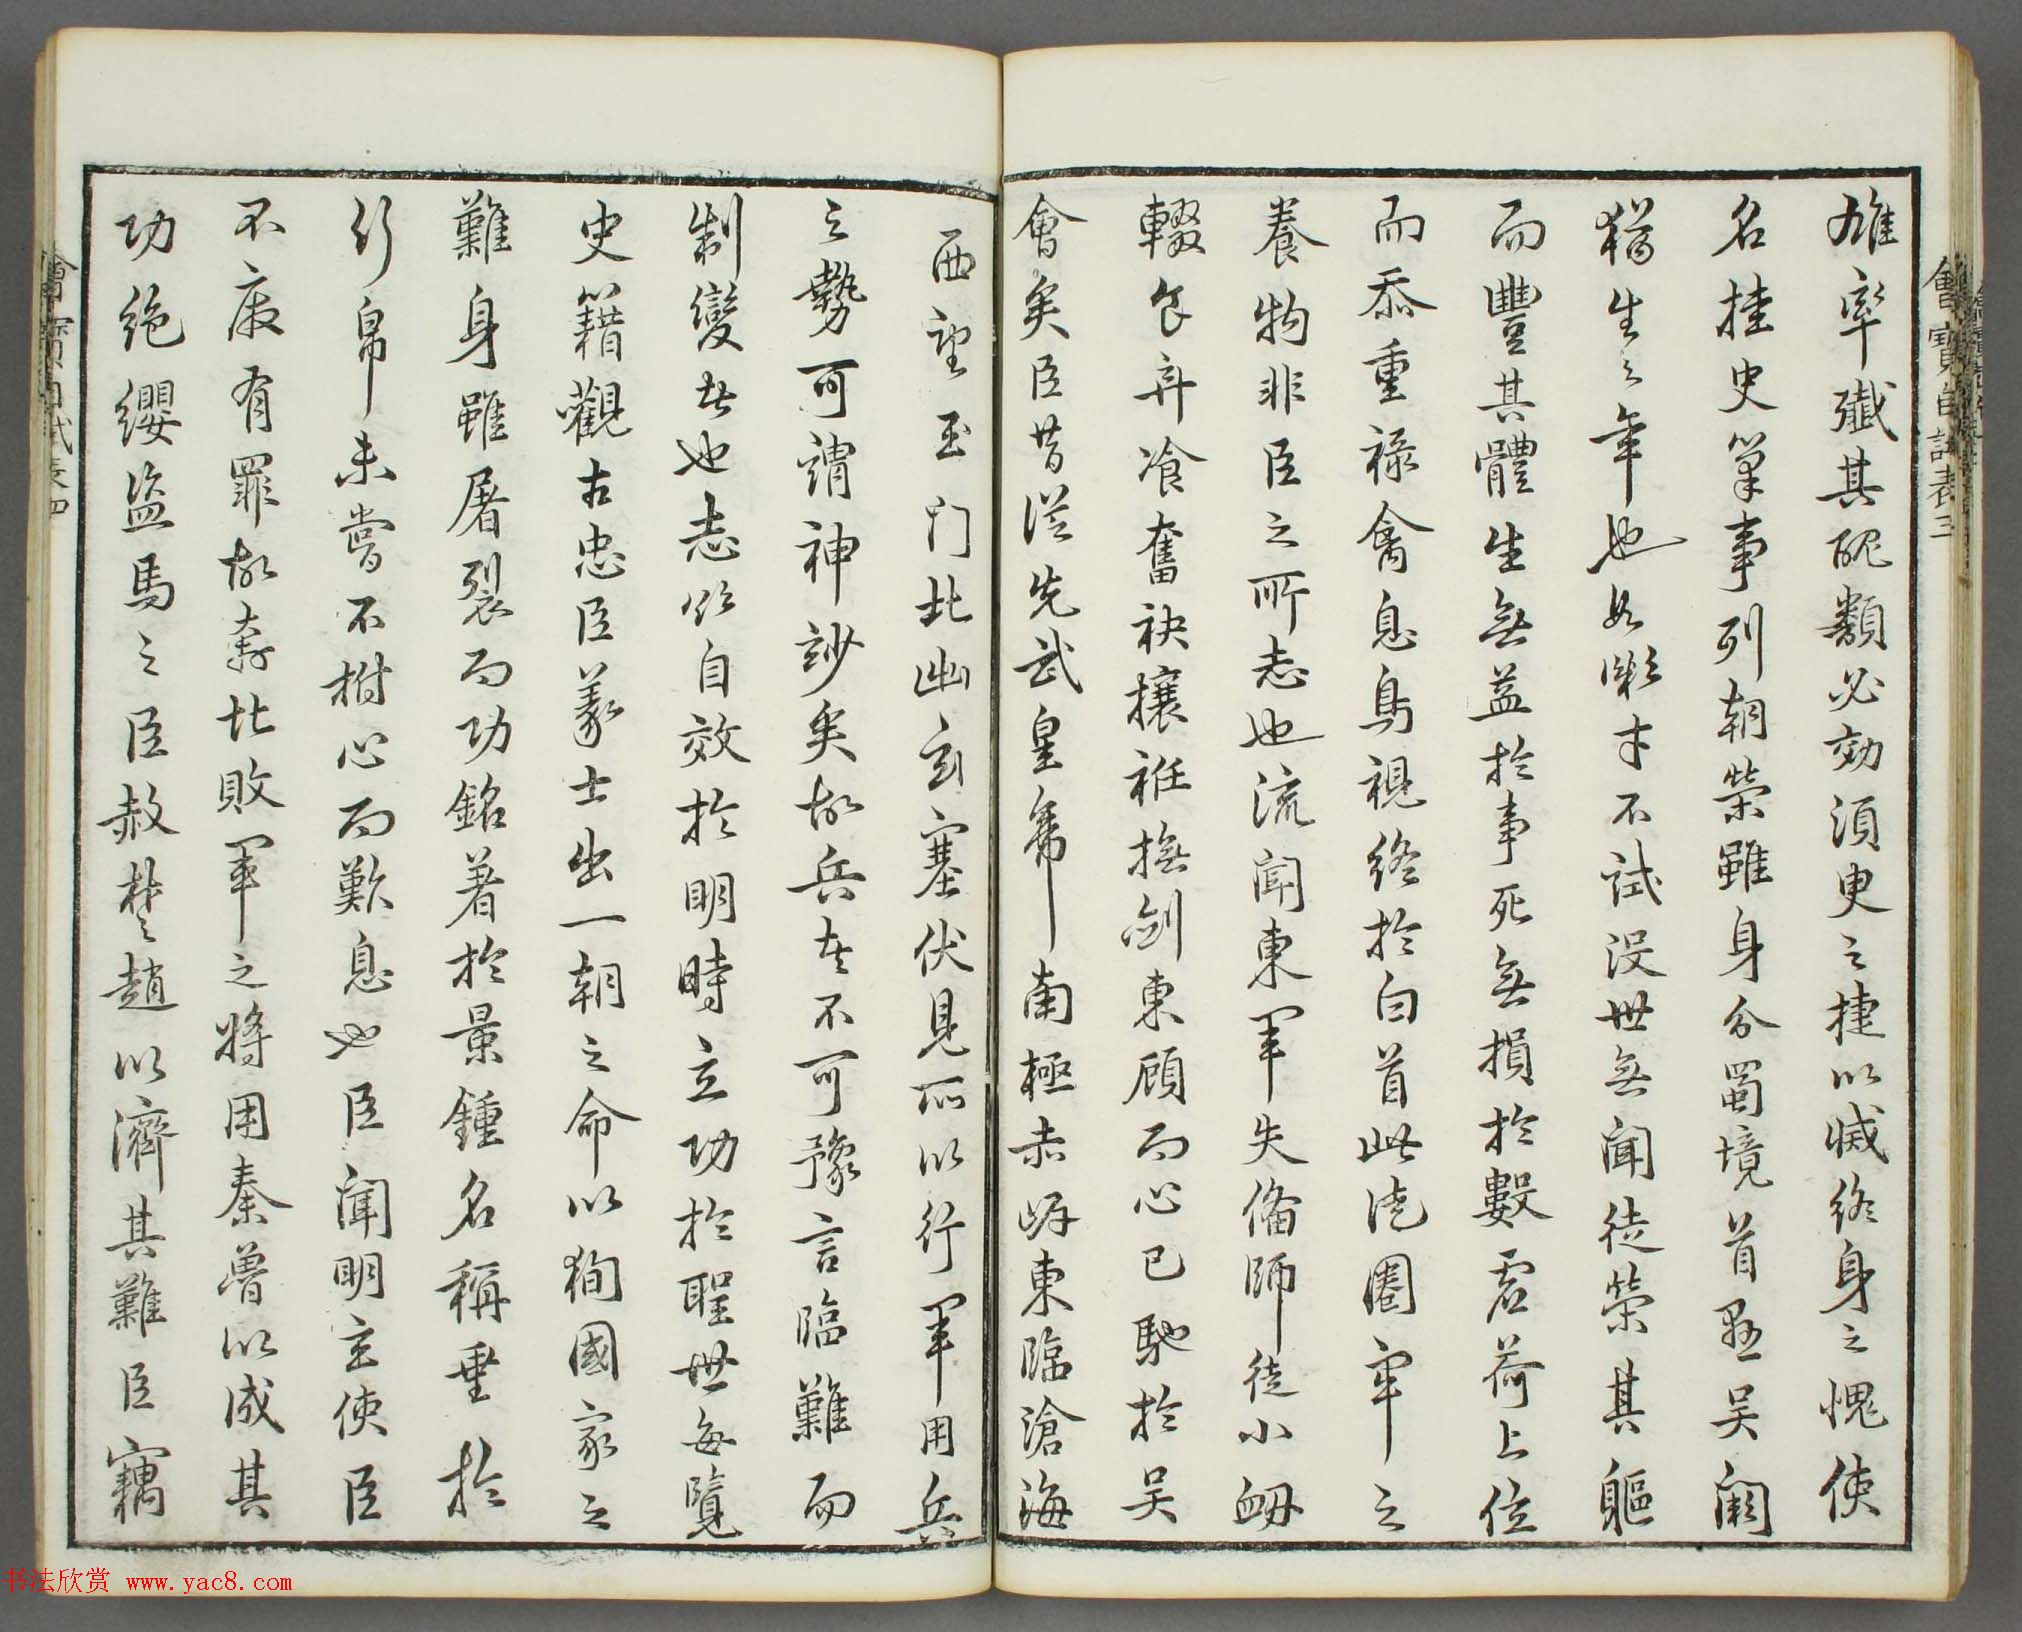 雄率殲其醜類必効須臾之捷以滅終身之愧使
名挂史筆事列朝榮雖身分蜀境首懸吳闕
猶生之年也如微才不試没世無聞徒榮其軀
而豐其體生無益於事死無損於數虛荷上位
而忝重禄禽息鳥視終於白首此徒圈牢之
養物非臣之所志也流聞東軍失備師徒小衂
輟食弃飡奮袂攘衽撫劍東顧而心已馳於吳
會矣臣昔從先武皇帝南極赤岸東臨滄海
西望玉門北出玄塞伏見所以行軍用兵
之勢可謂神妙矣故兵者不可豫言臨難而
制變者也志欲自效於明時立功於聖世每覽
史籍觀古忠臣義士出一朝之命以狥國家之
難身雖屠裂而功銘著於景鍾名稱垂於
竹帛未嘗不拊心而歎息也臣聞明主使臣
不廢有罪故奔北敗軍之將用秦魯以成其
功絶纓盜馬之臣赦楚趙以濟其難臣竊
會寶自試表三
會寶自試表四
书法欣赏 www.yac8.com